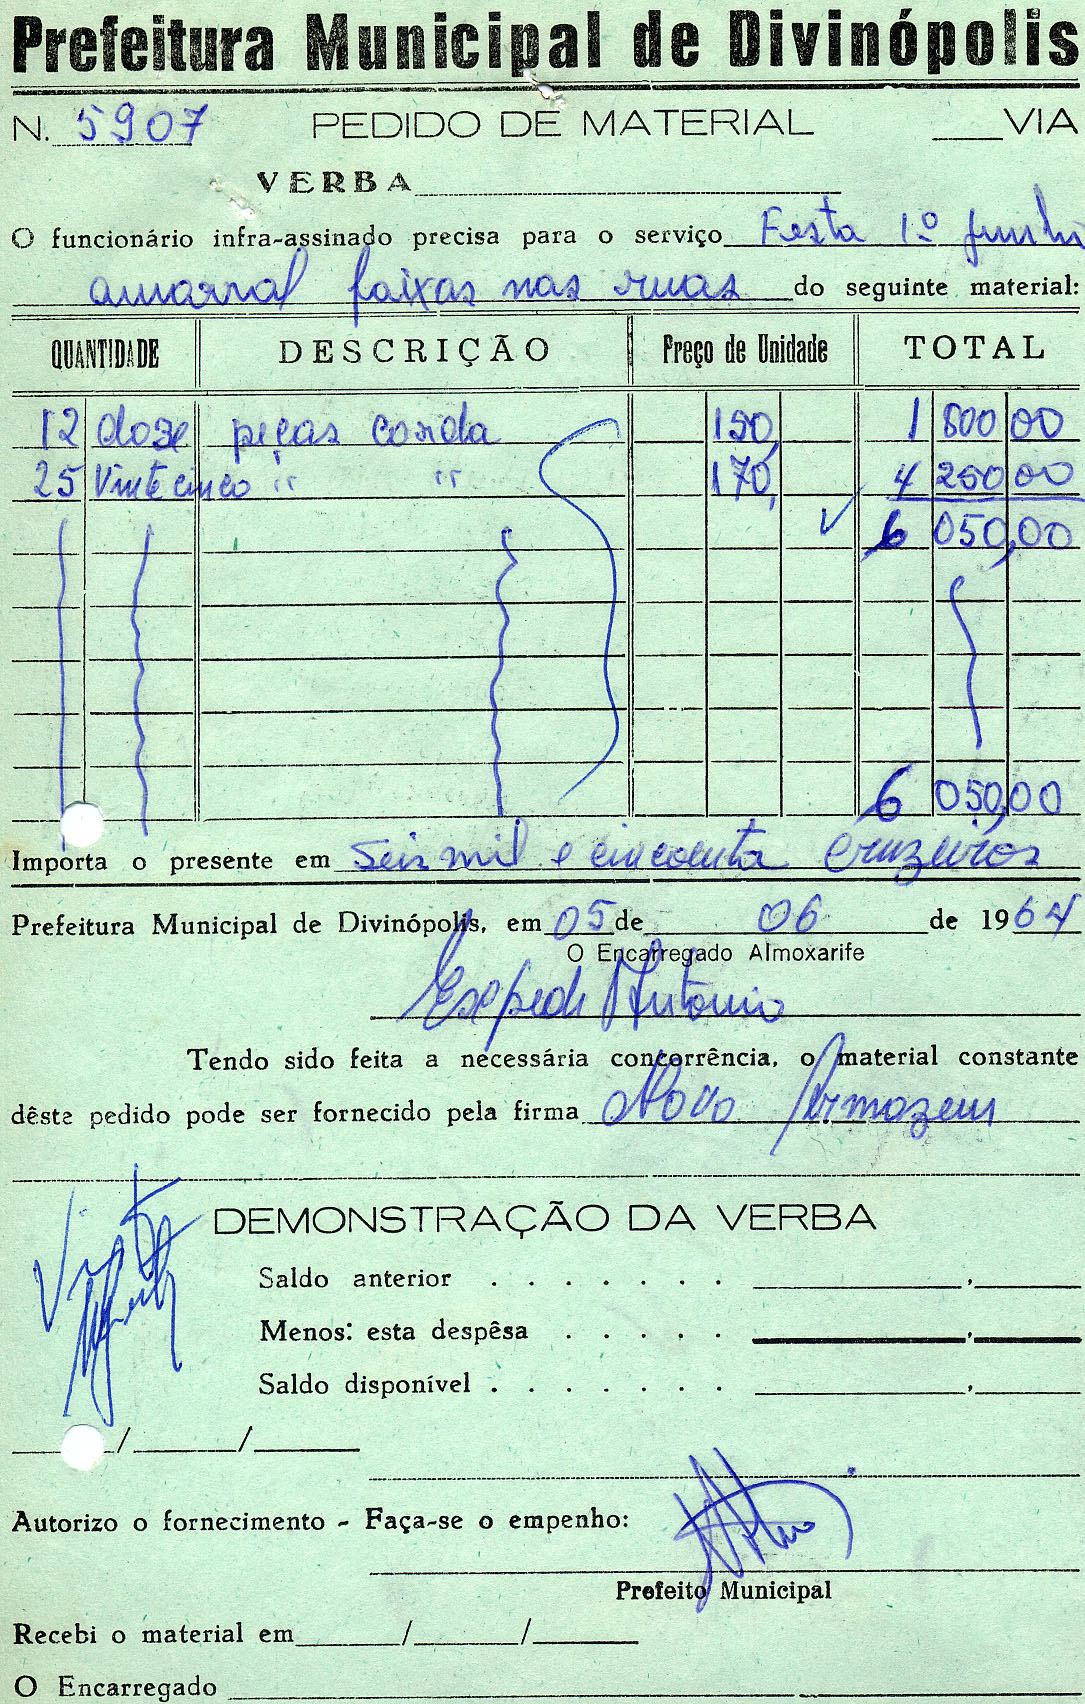 Prefeitura Municipal de Divinópolis
N. 5907 PEDIDO DE MATERIAL ____VIA
VERBA
O funcionário infra-assinado precisa para o serviço Festa 1º Junho
amarrar faixas nas ruas do seguinte material:
QUANTIDADE DESCRIÇÃO Preço de Unidade TOTAL
12 doze peças corda 150, 1 800,00
25 Vinte cinco " " 170, 4 250,00
6 050,00
6 050,00
Importa o presente em seis mil e cincoenta cruzeiros
Prefeitura Municipal de Divinópolis, em 05 de 06 de 1964
O Encarregado Almoxarife
Expedito Antonio
Tendo sido feita a necessária concorrência, o material constante
dêste pedido pode ser fornecido pela firma Novo Armazem
DEMONSTRAÇÃO DA VERBA
Saldo anterior . . . . . . . ,
Menos: esta despêsa . . . . . ,
Saldo disponível . . . . . . . ,
/ /
Autorizo o fornecimento - Faça-se o empenho:
Prefeito Municipal
Recebi o material em / /
O Encarregado